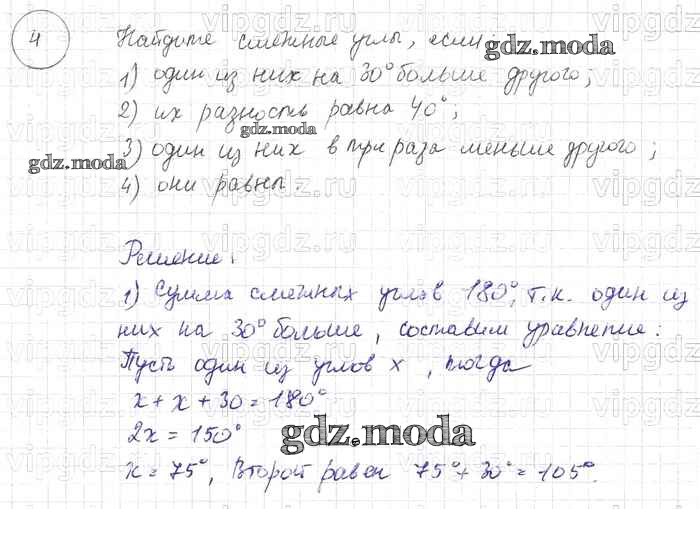 4 Найдите смежные углы, если:
1) один из них на 30° больше другого;
2) их разность равна 40°;
3) один из них в три раза меньше другого;
4) они равны.
Решение:
1) Сумма смежных углов 180°, т.к. один из
них на 30° больше, составим уравнение:
Пусть один из углов x, тогда
x + x + 30 = 180°
2x = 150°
x = 75°, Второй равен 75° + 30° = 105°.
gdz.moda
gdz.moda
gdz.moda
gdz.moda
vipgdz.ru